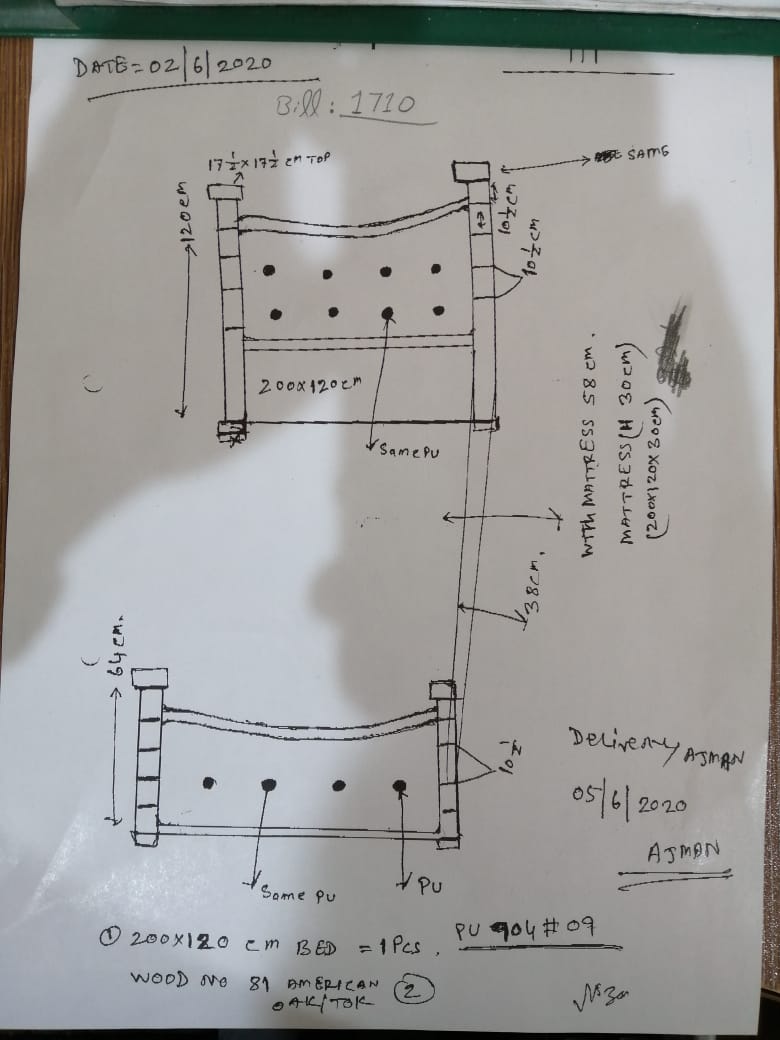 DATE = 02/6/2020
Bill: 1710
17 1/2 x 17 1/2 cm TOP
SAME
120cm
10 1/2 cm
10 1/2 cm
200x120cm
Same PU
WITH MATTRESS 58 cm.
MATTRESS (H 30cm)
(200x120x30cm)
38cm.
64cm.
10 1/2
Delivery AJMAN
05/6/2020
AJMAN
Same PU
PU
① 200x120 cm BED = 1 Pcs, PU 904 # 09
WOOD NO 81 AMERICAN
OAK/TOK ②